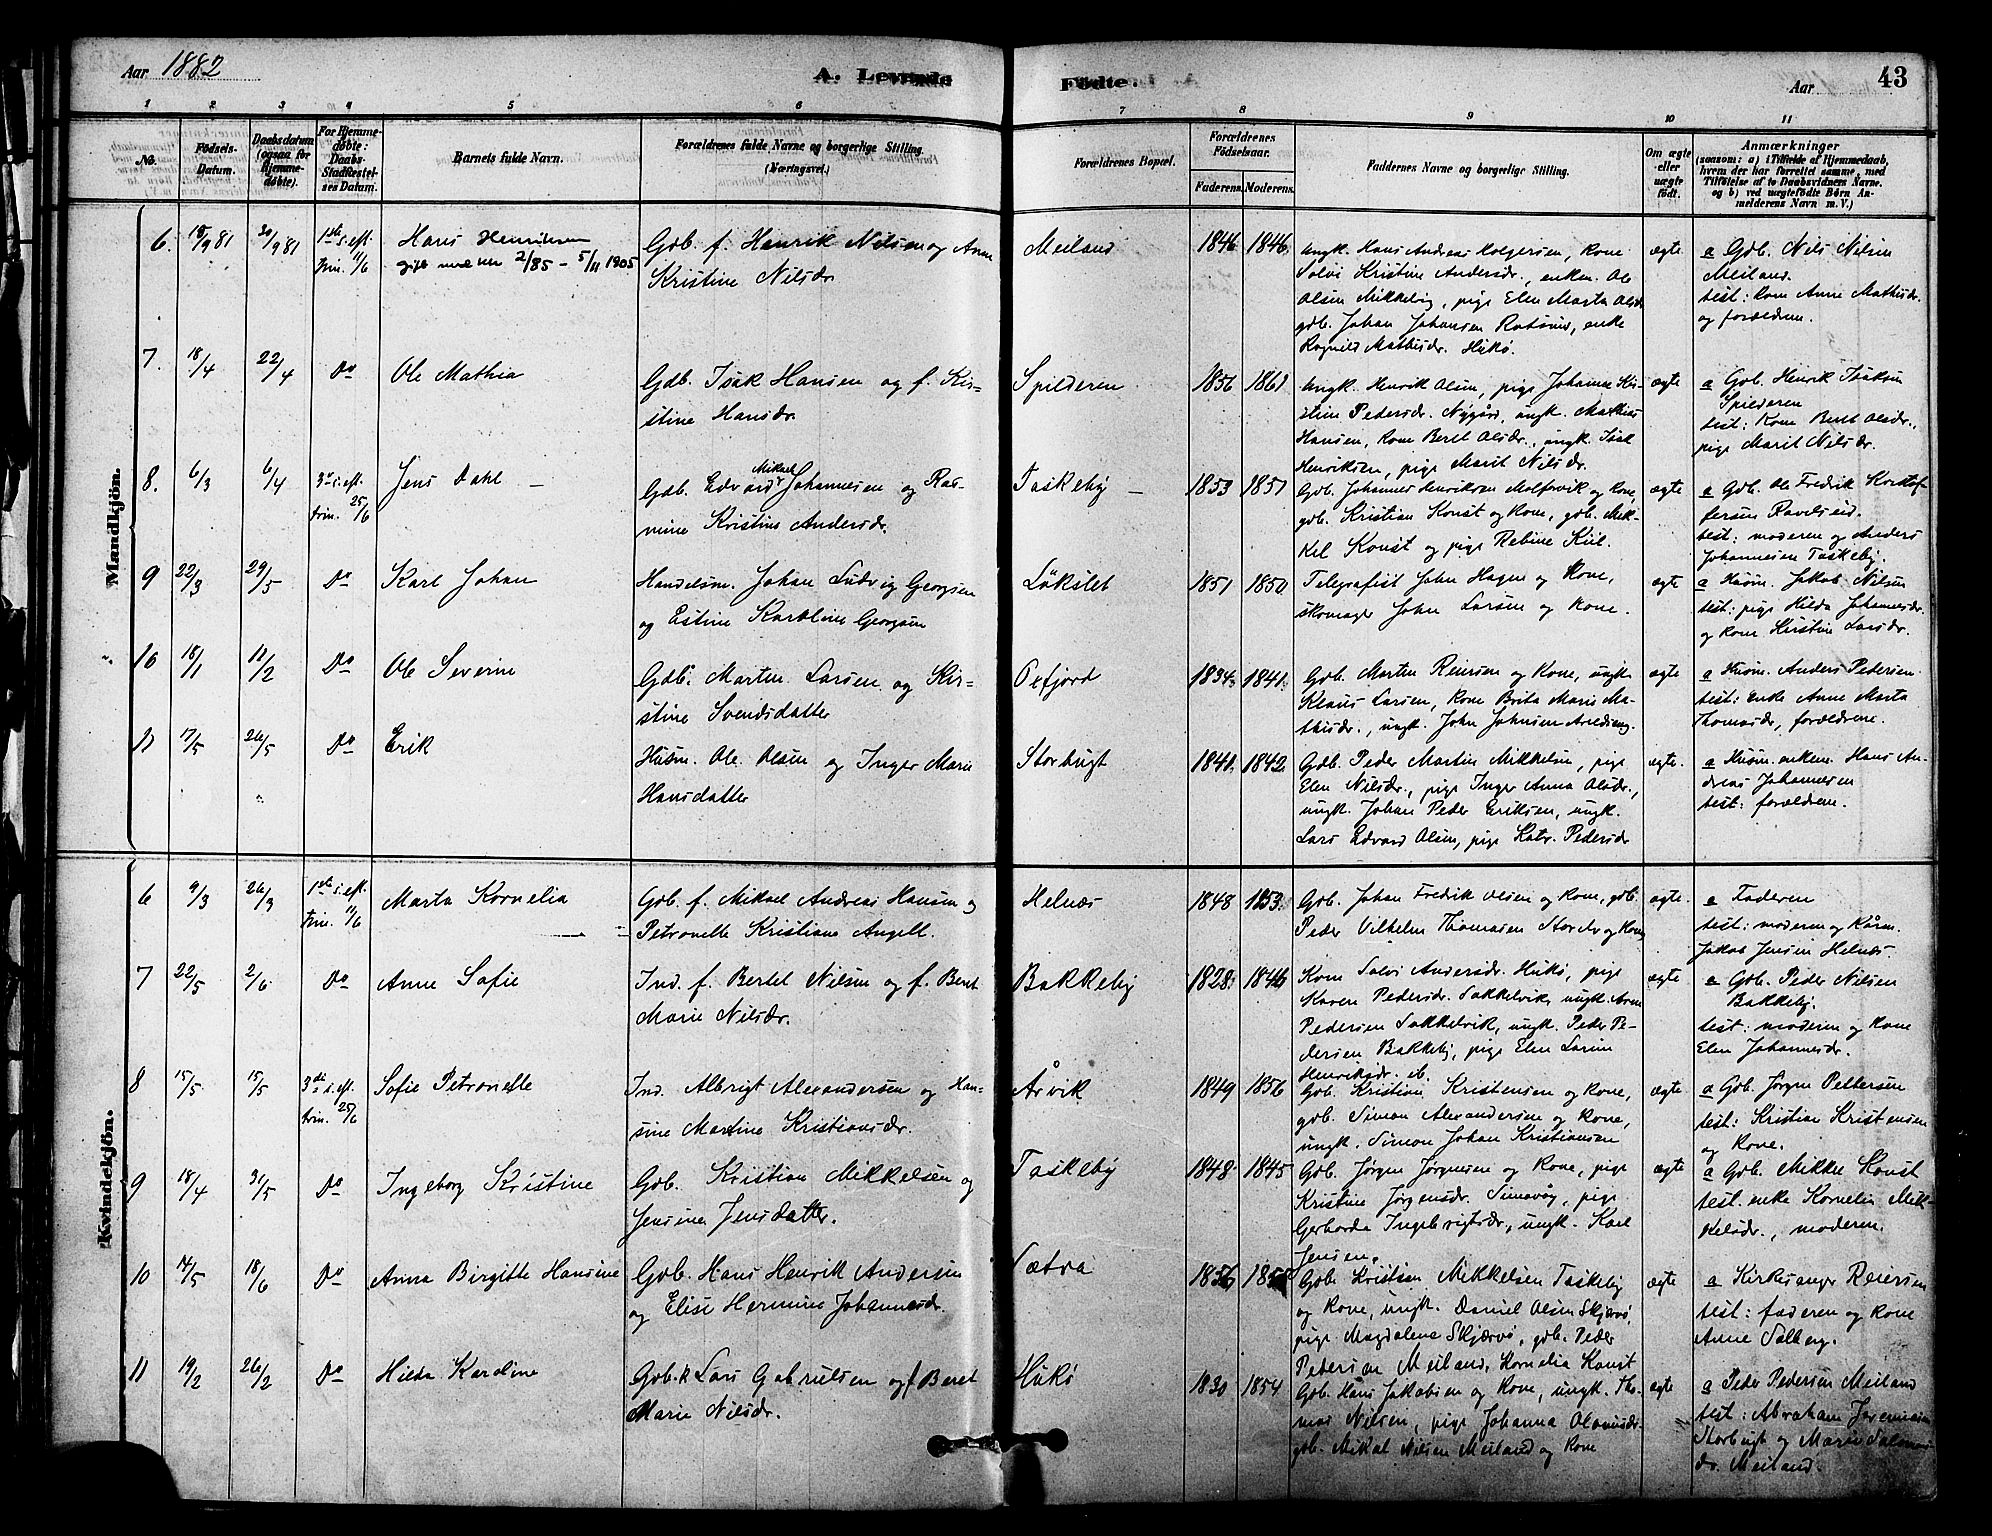 Aar 1882
A. Levende
Fødte.
Aar
43
1 2 3 4 5 6 7 8 9 10 11
No.
Fødsels-
Datum.
Daabsdatum
(ogsaa for
Hjemme-
døbte).
For Hjemme-
døbte:
Daabs-
Stadfæstel-
ses Datum.
Barnets fulde Navn.
Forældrenes fulde Navne og borgerlige Stilling.
(Næringsvei.)
Forældrenes Bopæl.
Forældrenes
Fødselsaar.
Faderens. Moderens.
Faddernes Navne og borgerlige Stilling.
Om ægte
eller
uægte
født.
Anmærkninger
(saasom: a) i Tilfælde af Hjemmedaab,
hvem der har forrettet samme, med
Tilføielse af to Daabsvidners Navne.
og b) ved uægtefødte Børn An-
melderens Navn m. V.)
Mandkjön.
6. 9/81 30/9 81
1ste s. eft.
Trin. 11/6
Hans Henriksen
gift 2/85 – 5/11 1905
Gdb. f. Hanrik Nilsen og Anne
Kristine Nilsdr.
Meiland
1846 1846
Ungk. Hans Andreas Holgersen, Kone
Solvi Kristine Andersdr., enkem. Ole
Olsen Mikkelvig, pige Elen Marta Olsdr.
gdb. Johan Johansen Rotsund, enke
Ragnild Mathisdr. Hukø.
ægte
a Gdb. Nils Nilsen
Meiland
test: Kone Anne Mathisdr.
og forældrene.
7. 18/4 22/4 Do
Ole Mathia
Gdb. Isak Hansen og f. Kir-
stine Hansdr.
Spilderen
1856 1861
Ungk. Henrik Olsen, pige Johanne Ki-
rstine Pedersdr. Nygård, ungk. Mathias
Hansen, Kone Beret Olsdr., ungk. Isak
Henriksen, pige Marit Nilsdr.
ægte
a Gdb. Henrik Isaksen
Spilderen
test: Kone Beret Olsdr.,
pige Marit Nilsdr.
8. 6/3 6/4
3die s. eft.
Trin. 25/6
Jens Dahl –
Gdb. Edvard Mikael Johannesen og Ras-
mine Kristine Andersdr.
Taskeby –
1853 1851
Gdb. Johannes Henriksen Molfervik og Kone,
gdb. Kristian Konst og Kone, gdb. Mik-
kel Konst og pige Rebine Kiil.
ægte
a Gdb. Ole Fredrik Kristof-
fersen Ravelseid.
test: moderen og Anders
Johannesen Taskeby.
9 22/3 29/5 Do
Karl Johan
Handelsm. Johan Ludvig Georgsen
og Estine Karoline Georgsen
Løkslet
1851 1850
Telegrafist John Hagen og Kone,
skomager John Larsen og Kone.
ægte
a Husm. Jakob Nilsen
test: pige Hilda Johannesdr.
og Kone Kirstine Larsdr.
10 18/1 11/2 Do
Ole Severin
Gdb. Morten Larsen og Kir-
stine Svendsdatter
Oxfjord
1834 1841
Gdb. Morten Reiersen og Kone, ungk.
Klaus Larsen, Kone Brita Marie Ma-
thisdr., ungk. John Johnsen
ægte
a Husm. Anders Pedersen
test: Enke Anne Marta
Thomasdr., forældrene.
11 17/5 26/5 Do
Erik
Husm. Ole Olsen og Inger Marie
Hansdatter
Storbugt
1841 1842
Gdb. Peder Martin Mikkelsen, pige
Elen Nilsdr., pige Inger Anna Olsdr.,
ungk. Johan Peder Eriksen, ungk.
Lars Edvard Olsen, pige Katr. Pedersdr
ægte
a Husm. enkem. Hans An-
dreas Johannesen
test: forældrene.
Kvindekjön.
6 9/3 26/3
1ste s. eft.
Trin. 11/6
Marta Kornelia
Gdb. f. Mikael Andreas Hansen og
Petronelle Kristiane Angell.
Helnæs
1848 1853
Gdb. Johan Fredrik Olsen og Kone, gdb.
Peder Vilhelm Thomasen Storde og Kone
ægte
a Faderen
test: moderen og Kårm.
Jakob Jensen Helnæs.
7 22/5 2/6 Do
Anne Sofie
Ind. f. Bertel Nilsen og f. Beret
Marie Nilsdr.
Bakkeby
1828 1846
Kone Solvi Andersdr. Hukø, pige
Karen Pedersdr. Sakkelvik, ungk. Arne
Pedersen Sakkelvik, ungk. Peder Pe-
dersen Bakkeby, pige Elen Larine
Henriksdr. ib.
ægte
a Gdb. Peder Nilsen
Bakkeby.
test: moderen og Kone
Elen Johannesdr.
8 15/5 15/5
3die s. eft.
Trin. 25/6
Sofie Petronelle
Ind. Albrigt Alexandersen og Han-
sine Martine Kristiansdr.
Årvik
1849 1856
Gdb. Kristian Kristensen og Kone,
gdb. Simon Alexandersen og Kone,
ungk. Simon Johan Kristiansen
ægte
a Gdb. Jørgen Pettersen
test: Kristian Kristensen
og Kone.
9 18/4 31/5 Do
Ingeborg Kristine
Gdb. Kristian Mikkelsen og
Jensine Jensdatter.
Taskeby
1848 1845
Gdb. Jørgen Jørgensen og Kone, pige
Kristine Jørgensdr. Simavåg, pige
Gerharda Ingebrigtsdr., ungk. Karl
Jensen.
ægte
a Gdb. Mikkel Konst
test. enke Kornelia Mik-
kelsdr., moderen.
10 14/5 18/6 Do
Anna Birgitte Hansine
Gdb. Hans Henrik Andersen
og Elise Hermine Johannesdr.
Sætra
1856
Gdb. Kristian Mikkelsen Taskeby
og Kone, ungk. Daniel Olsen Skjærvø,
pige Magdalena Skjærvø, gdb. Peder
Pedersen Meiland, Kornelia Konst
ægte
a Kirkesanger Reiersen
test: faderen og Kone
Anne Solberg.
11 19/2 26/2 Do
Hilda Karoline
Gdb. k Lars Gabrielsen og f Beret
Marie Nilsdr.
Hukø
1830 1854
Gdb. Hans Jakobsen og Kone, ungk. Tho-
mas Nilsen, pige Johanna
gdb. Mikal Nilsen Meiland og Kone
ægte
a Peder Pedersen Meiland
test: Abraham Jeremiasen
Storbugt og Marie Salomons-
dr. Meiland.